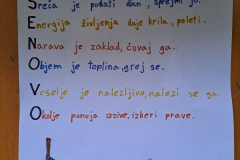 Sreča je podati dlan, sprejmi jo.
Energija življenja daje krila, poleti.
Narava je zaklad, čuvaj ga.
Objem je toplina, grej se.
Veselje je nalezljivo, nalezi se ga.
Okolje ponuja izzive, izberi prave.